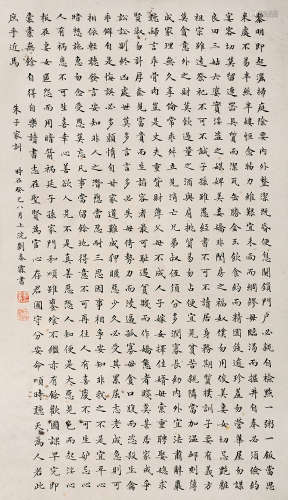 黎明即起灑掃庭除要內外整潔既昏便息關鎖門戶必親自檢點一粥一飯當思
來處不易半絲半縷恆念物力維艱宜未雨而綢繆毋臨渴而掘井自奉必須儉約
宴客切勿留連器具質而潔瓦缶勝金玉飲食約而精園蔬愈珍饈勿營華屋勿謀
良田三姑六婆實淫盜之媒婢美妾嬌非閨房之福奴僕勿用俊美妻妾切忌艷粧
祖宗雖遠祭祀不可不誠子孫雖愚經書不可不讀居身務期質樸訓子要有義方
莫貪意外之財莫飲過量之酒與肩挑貿易毋佔便宜見貧苦親鄰須加溫恤刻薄
成家理無久享倫常乖舛立見消亡兄弟叔侄須分多潤寡長幼內外宜法肅辭嚴
聽婦言乖骨肉豈是丈夫重貲財薄父母不成人子嫁女擇佳婿毋索重聘娶媳求
淑女勿計厚奩見富貴而生諂容者最可恥遇貧窮而作驕態者賤莫甚居家戒爭
訟訟則終凶處世戒多言言多必失毋恃勢力而凌逼孤寡毋貪口腹而恣殺生禽
乖僻自是悔誤必多頹惰自甘家道難成狎暱惡少久必受其累屈志老成急則可
相依輕聽發言安知非人之譖愬當忍耐三思因事相爭安知非我之不是宜平心
暗想施惠勿念受恩莫忘凡事當留餘地得意不宜再往人有喜慶不可生妒忌心
人有禍患不可生喜幸心善欲人見不是真善惡恐人知便是大惡見色而起淫心
報在妻女匿怨而用暗箭禍延子孫家門和順雖饔飧不繼亦有餘歡國課早完即
囊橐無餘自得至樂讀書志在聖賢為官心存君國守分安命順時聽天為人若此
庶乎近焉
朱子家訓 時在癸巳八月上浣劉春霖書